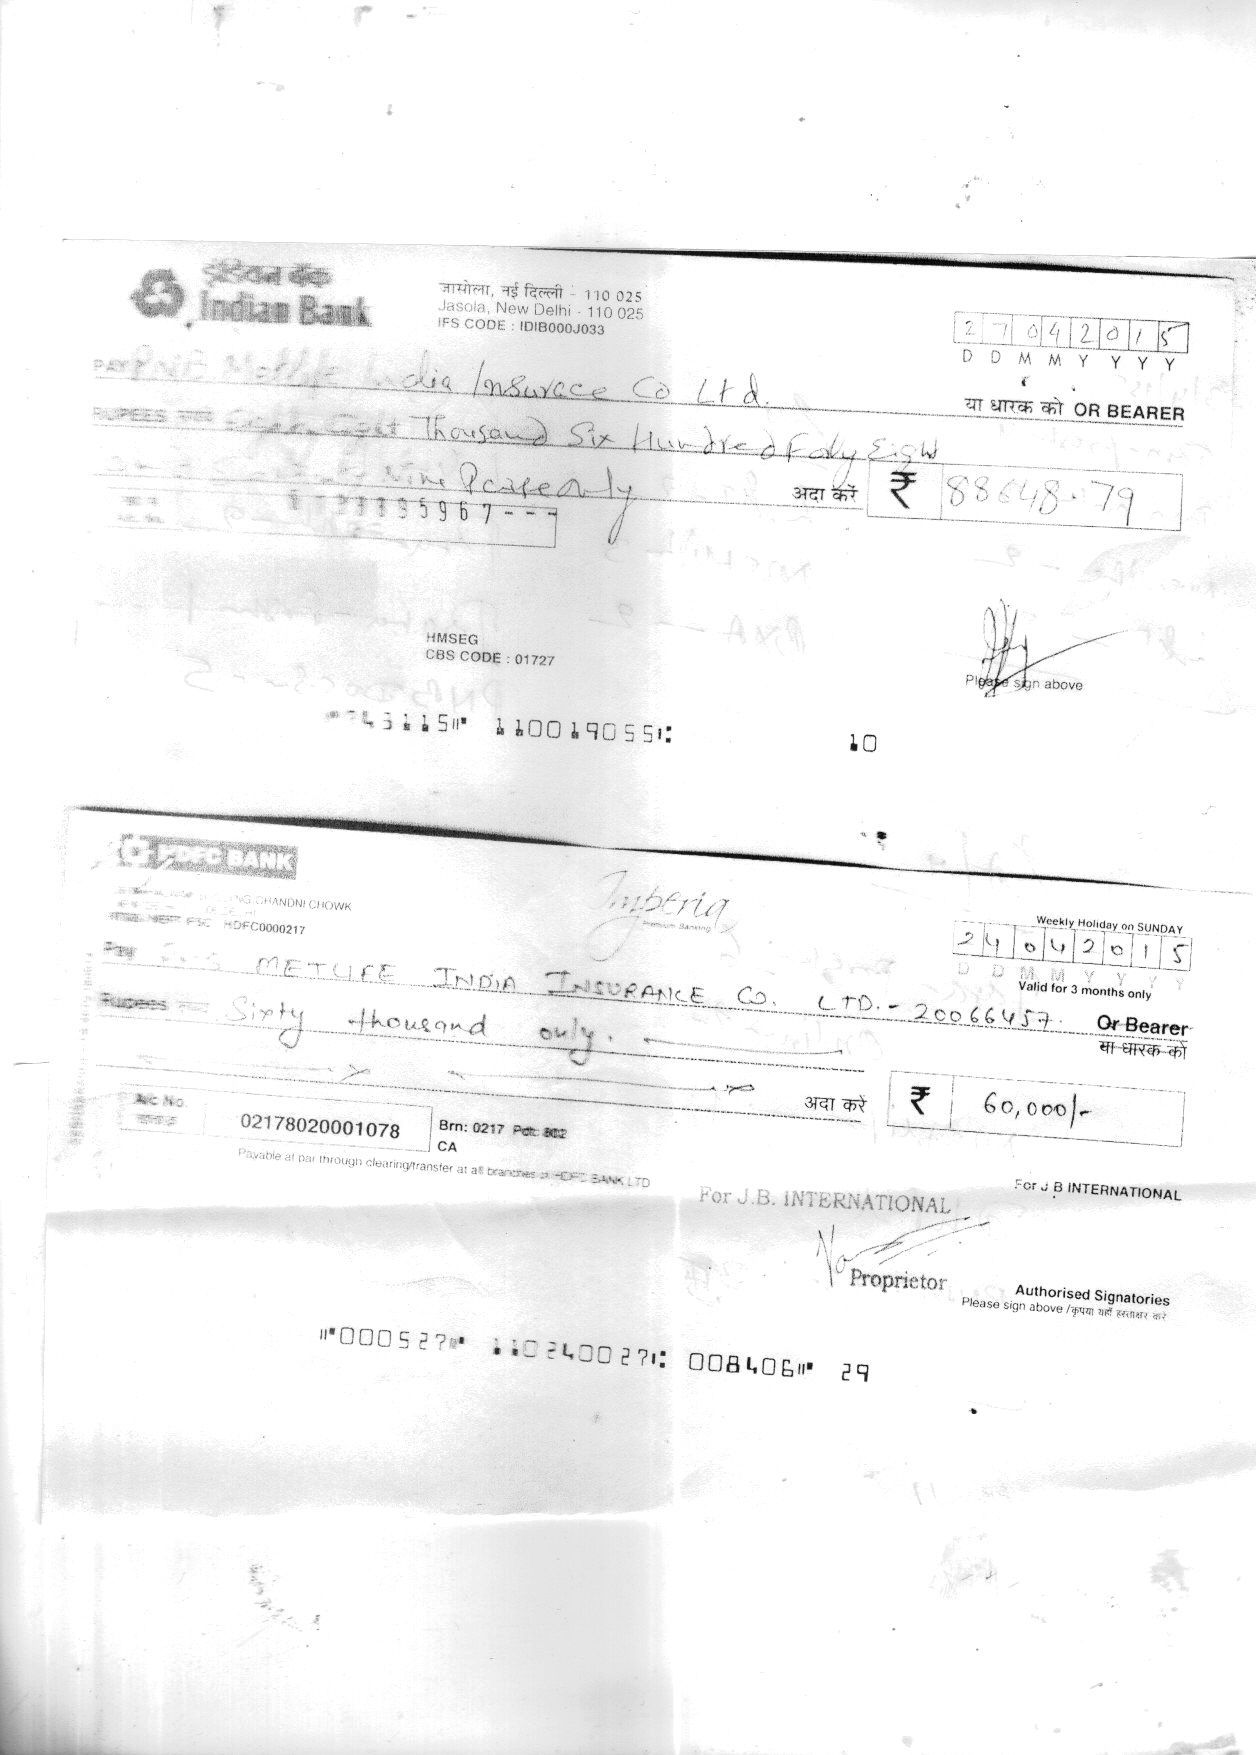 इंडियन बैंक
Indian Bank
जासोला, नई दिल्ली - 110 025
Jasola, New Delhi - 110 025
IFS CODE : IDIB000J033
2 7 0 4 2 0 1 5
D D M M Y Y Y Y
PAY India Insurace Co Ltd.
या धारक को OR BEARER
RUPEES Thousand Six Hundred Foty Eight
Nine Paise only
अदा करें ₹ 88648.79
5967---
HMSEG
CBS CODE : 01727
Please sign above
45115⑈ 110019055⑆ 10
HDFC BANK
CHANDNI CHOWK
HDFC0000217
Imperia
Premium Banking
Weekly Holiday on SUNDAY
2 4 0 4 2 0 1 5
D D M M Y Y Y Y
Valid for 3 months only
Pay METLIFE INDIA INSURANCE CO. LTD.- 20066457
Or Bearer
या धारक को
Rupees Sixty thousand only.
अदा करें ₹ 60,000/-
A/c No.
02178020001078
Brn: 0217 Pdt: 802
CA
Payable at par through clearing/transfer at all branches of HDFC BANK LTD
For J.B. INTERNATIONAL
For J B INTERNATIONAL
Proprietor
Authorised Signatories
Please sign above /कृपया यहाँ हस्ताक्षर करें
⑈000527⑈ 110240027⑆ 008406⑈ 29